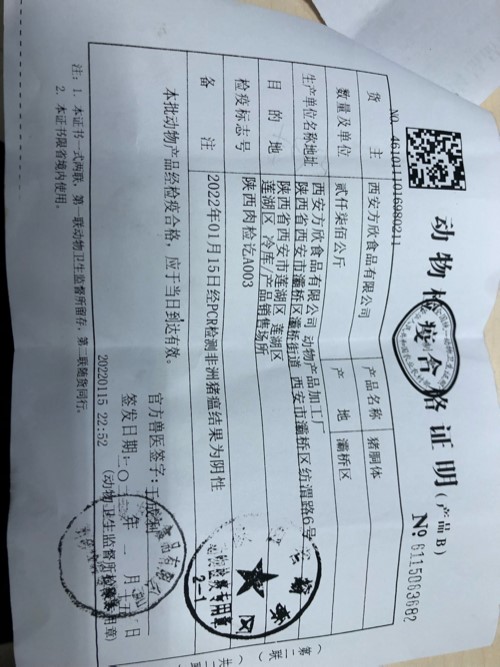 动物检疫合格证明(产品B)
NO. 4610111016980211
№ 6115063682
货 主 西安方欣食品有限公司 产品名称 猪胴体
数量及单位 贰仟柒佰公斤 产 地 灞桥区
生产单位名称地址 西安方欣食品有限公司 动物产品加工厂
陕西省西安市灞桥区灞桥街道 西安市灞桥区纺渭路6号
目 的 地 陕西省西安市莲湖区 莲湖区
莲湖区 冷库/产品销售场所
检疫标志号 陕西肉检讫A003
备 注 2022年01月15日经PCR检测非洲猪瘟结果为阴性
本批动物产品经检疫合格，应于当日到达有效。
官方兽医签字:
签发日期: 年 一 月 日
20220115 22:52 (动物卫生监督所 章)
注: 1. 本证书一式两联，第一联动物卫生监督所留存，第二联随货同行。
2. 本证书限省境内使用。
专用章
2-1
(第二联